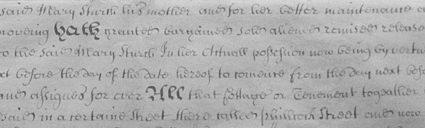 said Mary Sturch his mother and for her better maintenance a
moveing hath granted bargained sold aliened remised releas
to the said Mary Sturch in her Actuall possession now being by vertu
ext before the day of the date hereof to comence from the day next befo
and assignes for ever All that Cottage or Tenement togather
said in a certaine Street there called Street and now